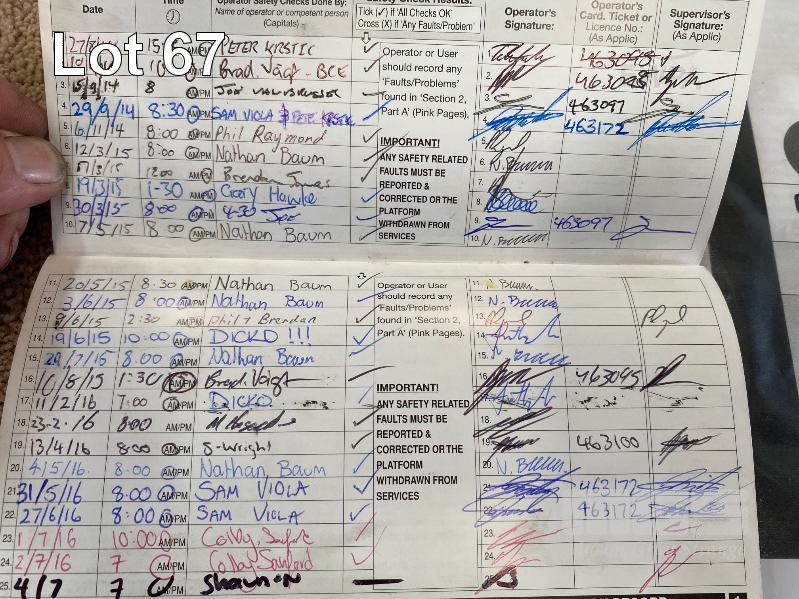 Lot 67
Date
Time
Operator Safety Checks Done By:
Name of operator or competent person
(Capitals)
Safety Check Results:
Tick (✓) if 'All Checks OK'
Cross (X) if 'Any Faults/Problem'
Operator's
Signature:
Operator's
Card. Ticket or
Licence No.:
(As Applic)
Supervisor's
Signature:
(As Applic)
15 AM/PM PETER KRSTIC ✓ 463095
Brad. Voigt - BCE ✓ 2. 463095
3. 15/9/14 8 AM/PM JOE ✓ 3. 463097
4. 29/9/14 8:30 AM/PM SAM VIOLA & PETE KRSTIC ✓ 4. 463172
5. 16/11/14 8:00 AM/PM Phil Raymond ✓ 5.
6. 12/3/15 8:00 AM/PM Nathan Baum ✓ 6.
1200 AM/PM Brendan ✓ 7.
8. 19/3/15 1-30 AM/PM Hawke ✓ 8.
9. 30/3/15 8:00 AM/PM 4-30 Joe ✓ 9. 463097
10. 7/5/15 8 00 AM/PM Nathan Baum ✓ 10. N. Baum
Operator or User
should record any
'Faults/Problems'
found in 'Section 2,
Part A' (Pink Pages).
IMPORTANT!
ANY SAFETY RELATED
FAULTS MUST BE
REPORTED &
CORRECTED OR THE
PLATFORM
WITHDRAWN FROM
SERVICES
11. 20/5/15 8:30 AM/PM Nathan Baum ✓ 11. N. Baum
12. 3/6/15 8:00 AM/PM Nathan Baum ✓ 12. N. Baum
13. 8/6/15 2:30 AM/PM Phil & Brendan ✓ 13.
14. 19/6/15 10:00 AM/PM DICKO !!! ✓ 14.
15. 29/7/15 8:00 AM/PM Nathan Baum ✓ 15. N. Baum
16. 10/8/15 1:30 AM/PM Brad. Voigt ✓ 16. 463095
17. 11/2/16 7:00 AM/PM DICKO 17.
18. 23-2-16 8:00 AM/PM ✓ 18.
19. 13/4/16 8:00 AM/PM S-Wright ✓ 19. 463100
20. 4/5/16 8:00 AM/PM Nathan Baum ✓ 20. N. Baum
21. 31/5/16 8:00 AM/PM SAM VIOLA ✓ 21. 463172
22. 27/6/16 8:00 AM/PM SAM VIOLA ✓ 22. 463172
23. 1/7/16 10:00 AM/PM Colby Sanford 23.
24. 2/7/16 7 AM/PM Colby Sanford ✓ 24.
25. 4/7 7 AM/PM Shannon — 25.
Operator or User
should record any
'Faults/Problems'
found in 'Section 2,
Part A' (Pink Pages).
IMPORTANT!
ANY SAFETY RELATED
FAULTS MUST BE
REPORTED &
CORRECTED OR THE
PLATFORM
WITHDRAWN FROM
SERVICES